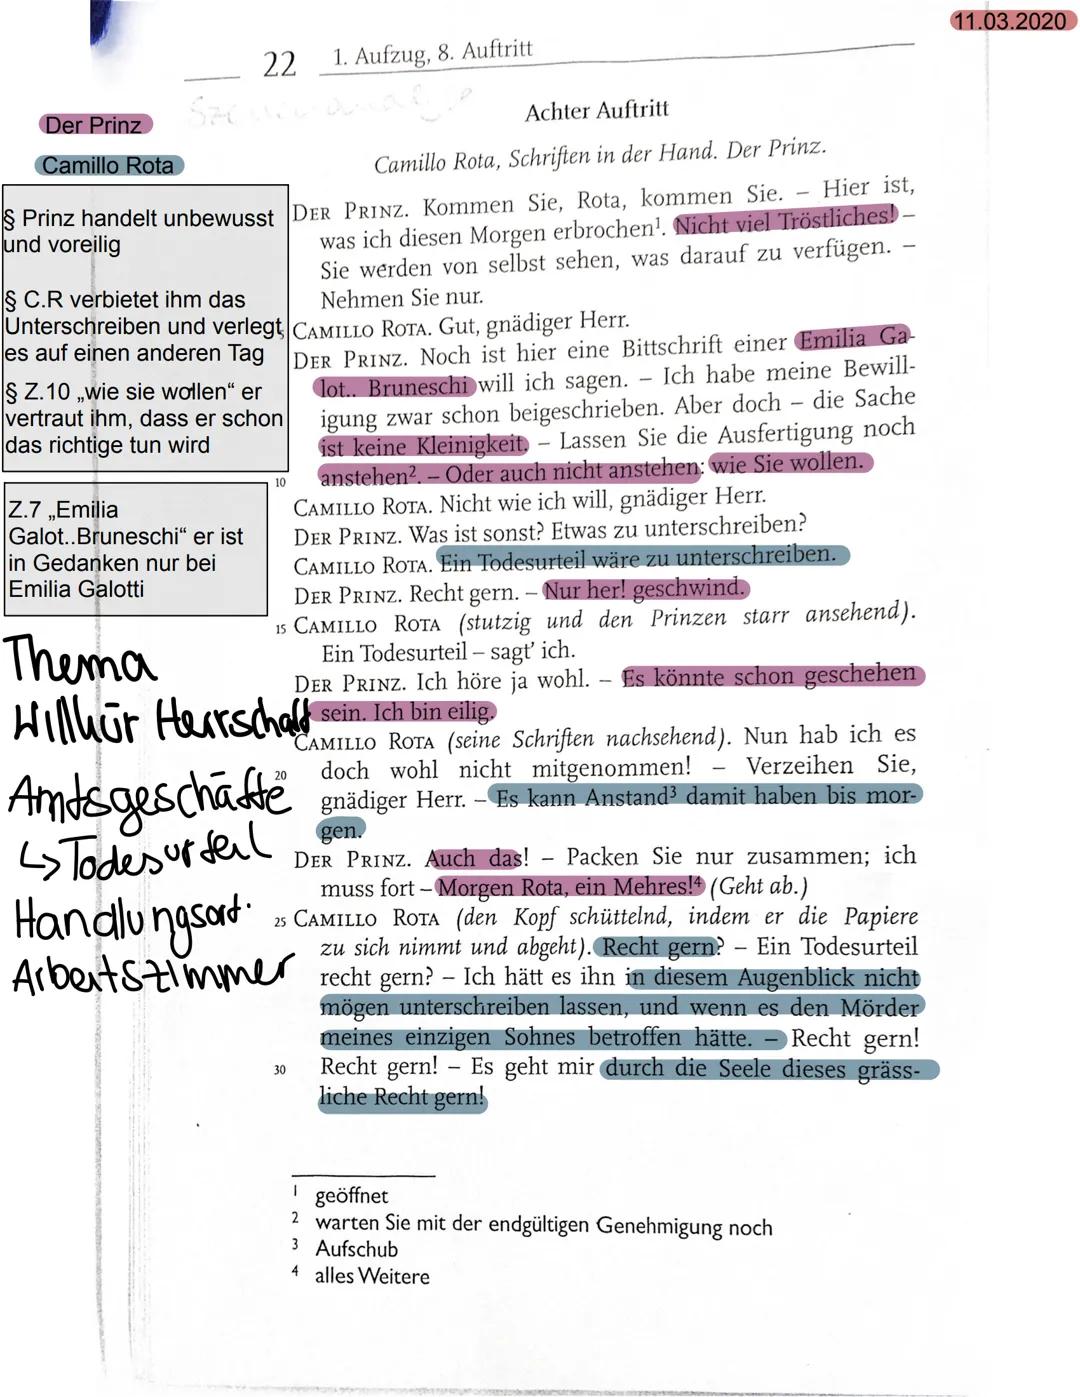 11.03.2020
22 1. Aufzug, 8. Auftritt
Der Prinz
Camillo Rota
§ Prinz handelt unbewusst
und voreilig
§ C.R verbietet ihm das
Unterschreiben und verlegt
es auf einen anderen Tag
§ Z.10 „wie sie wollen“ er
vertraut ihm, dass er schon
das richtige tun wird
Z.7 „Emilia
Galot..Bruneschi“ er ist
in Gedanken nur bei
Emilia Galotti
Thema
Willkür Herrschaft
Amtsgeschäfte
↳ Todesurteil
Handlungsort:
Arbeitszimmer
Achter Auftritt
Camillo Rota, Schriften in der Hand. Der Prinz.
DER PRINZ. Kommen Sie, Rota, kommen Sie. – Hier ist,
was ich diesen Morgen erbrochen¹. Nicht viel Tröstliches! –
Sie werden von selbst sehen, was darauf zu verfügen. –
Nehmen Sie nur.
5 CAMILLO ROTA. Gut, gnädiger Herr.
DER PRINZ. Noch ist hier eine Bittschrift einer Emilia Ga-
lot.. Bruneschi will ich sagen. – Ich habe meine Bewill-
igung zwar schon beigeschrieben. Aber doch – die Sache
ist keine Kleinigkeit. – Lassen Sie die Ausfertigung noch
10 anstehen². – Oder auch nicht anstehen: wie Sie wollen.
CAMILLO ROTA. Nicht wie ich will, gnädiger Herr.
DER PRINZ. Was ist sonst? Etwas zu unterschreiben?
CAMILLO ROTA. Ein Todesurteil wäre zu unterschreiben.
DER PRINZ. Recht gern. – Nur her! geschwind.
15 CAMILLO ROTA (stutzig und den Prinzen starr ansehend).
Ein Todesurteil – sagt' ich.
DER PRINZ. Ich höre ja wohl. – Es könnte schon geschehen
sein. Ich bin eilig.
CAMILLO ROTA (seine Schriften nachsehend). Nun hab ich es
20 doch wohl nicht mitgenommen! – Verzeihen Sie,
gnädiger Herr. – Es kann Anstand³ damit haben bis mor-
gen.
DER PRINZ. Auch das! – Packen Sie nur zusammen; ich
muss fort – Morgen Rota, ein Mehres!⁴ (Geht ab.)
25 CAMILLO ROTA (den Kopf schüttelnd, indem er die Papiere
zu sich nimmt und abgeht). Recht gern? – Ein Todesurteil
recht gern? – Ich hätt es ihn in diesem Augenblick nicht
mögen unterschreiben lassen, und wenn es den Mörder
meines einzigen Sohnes betroffen hätte. – Recht gern!
30 Recht gern! – Es geht mir durch die Seele dieses gräss-
liche Recht gern!
1 geöffnet
2 warten Sie mit der endgültigen Genehmigung noch
3 Aufschub
4 alles Weitere